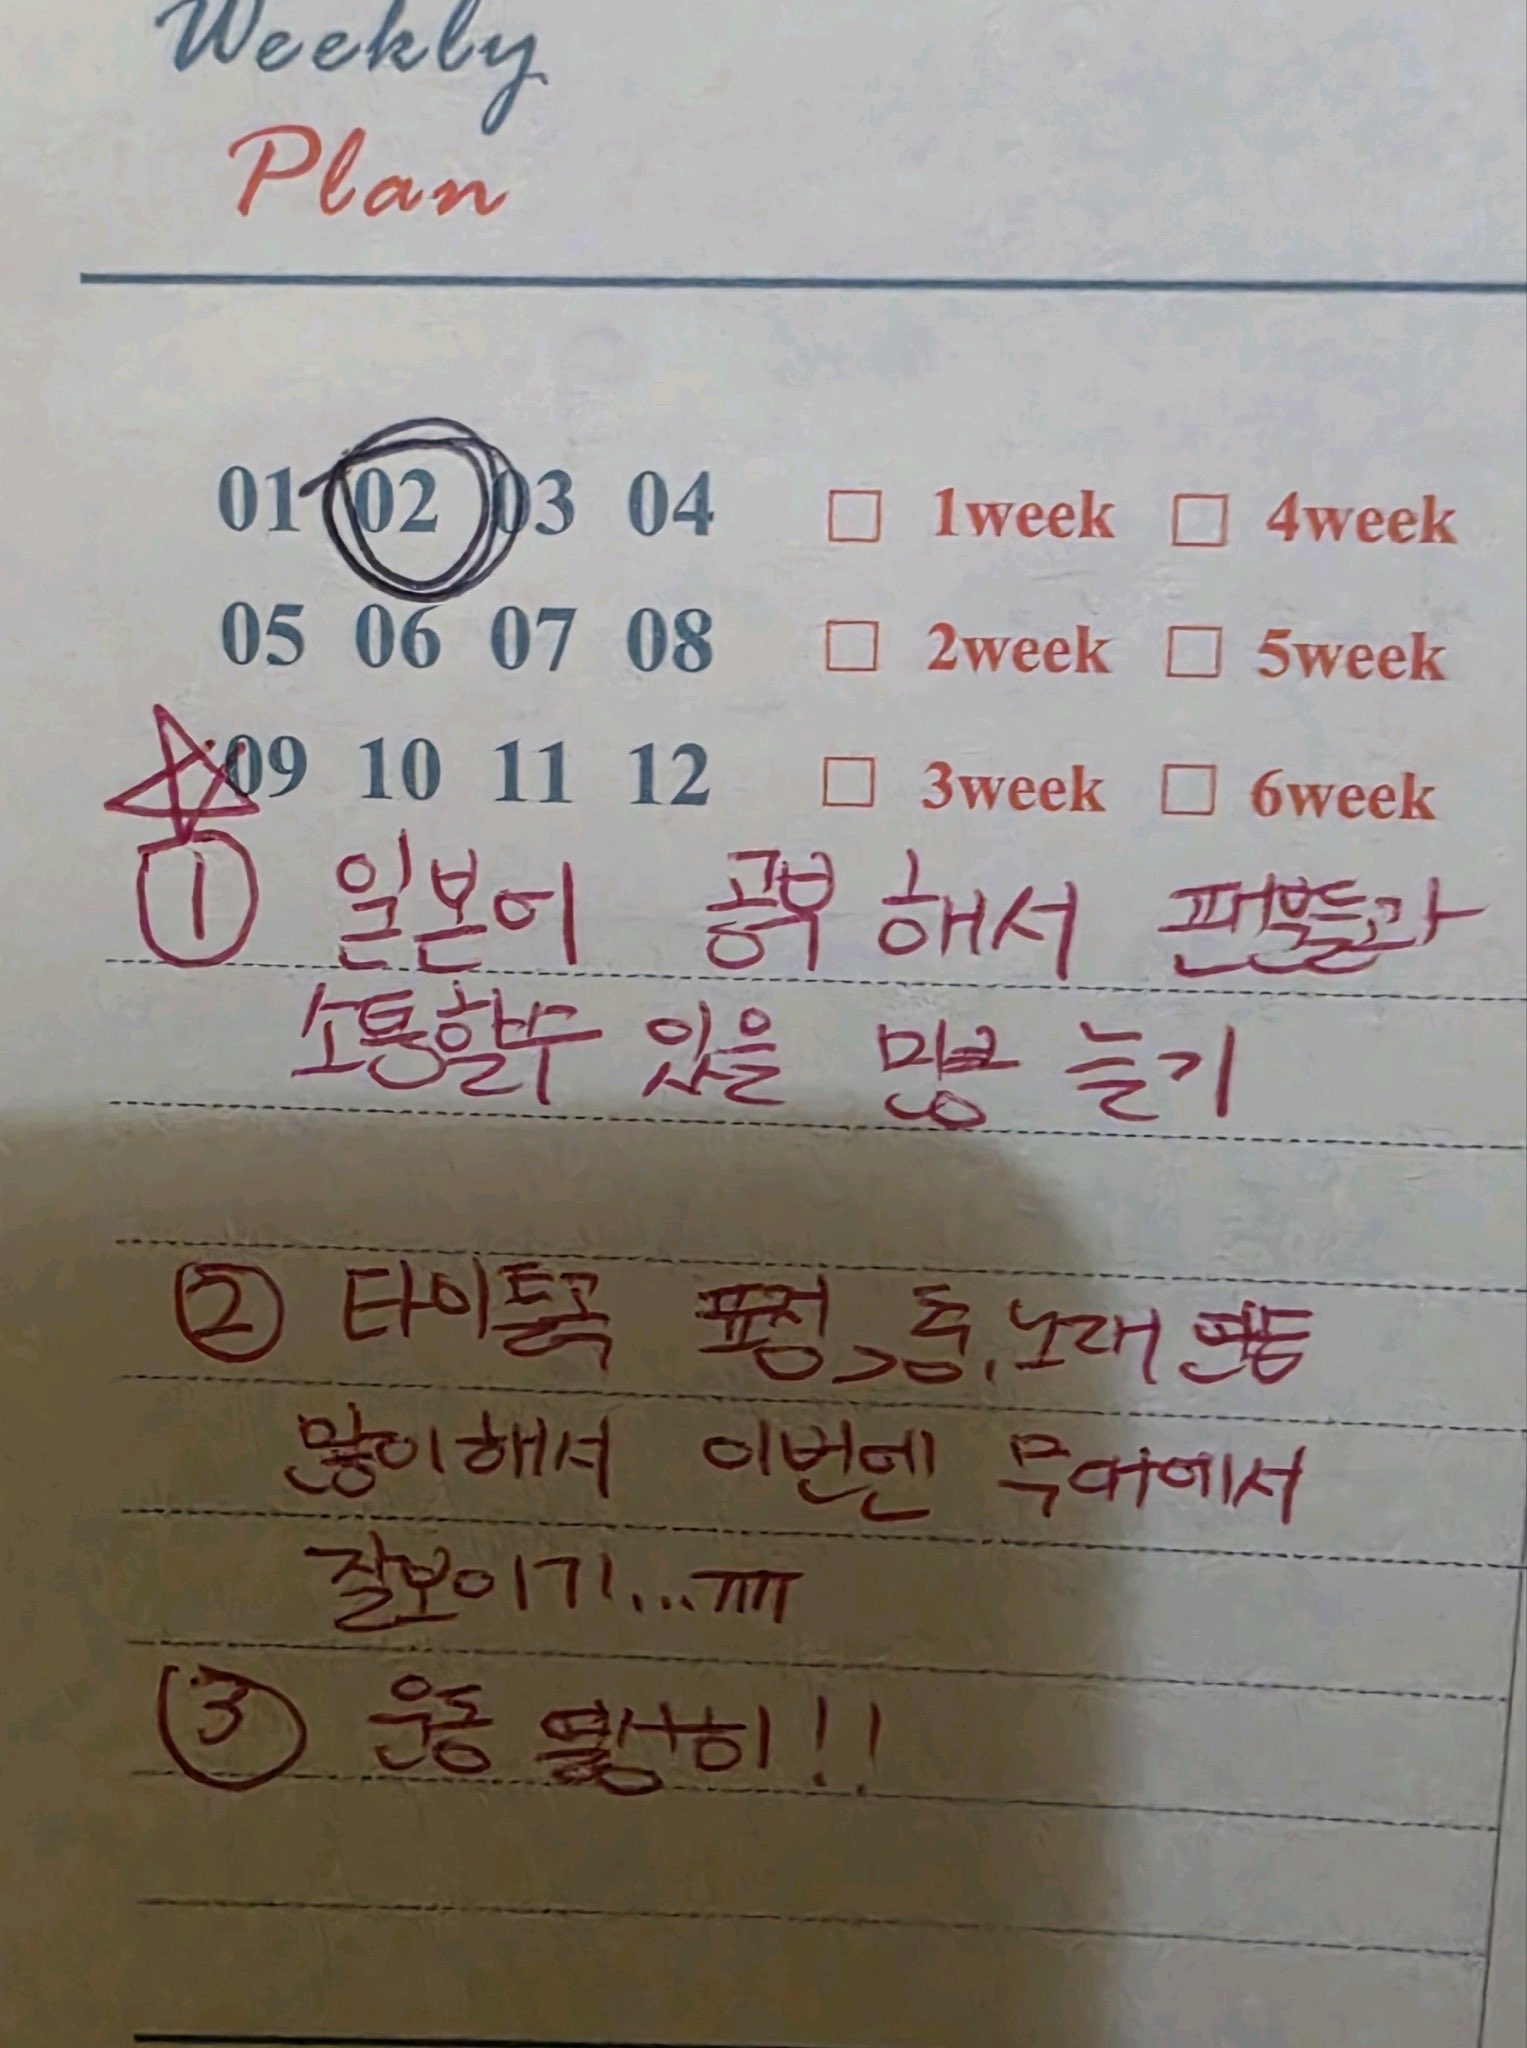 Weekly
Plan
01 02 03 04 1week 4week
05 06 07 08 2week 5week
09 10 11 12 3week 6week
① 일본어 공부 해서 팬분들과
소통할수 있을 만큼 늘기
② 타이틀곡 표정, 춤, 노래 연습
많이해서 이번엔 무대에서
잘보이기...ㅠㅠ
③ 운동 열심히!!